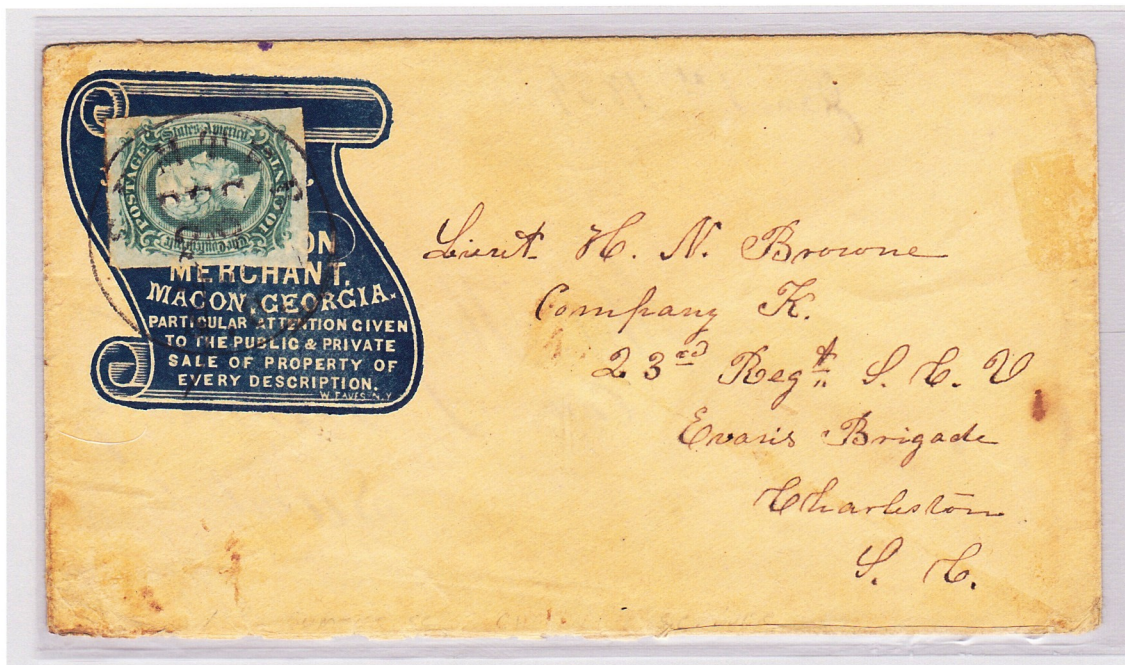 ON
MERCHANT.
MACON, GEORGIA.
PARTICULAR ATTENTION GIVEN
TO THE PUBLIC & PRIVATE
SALE OF PROPERTY OF
EVERY DESCRIPTION.
W. EAVES N.Y
POSTAGE
States America
Lieut H. N. Browne
Company K.
23rd Regt. S. C. V
Evans Brigade
Charleston
S. C.